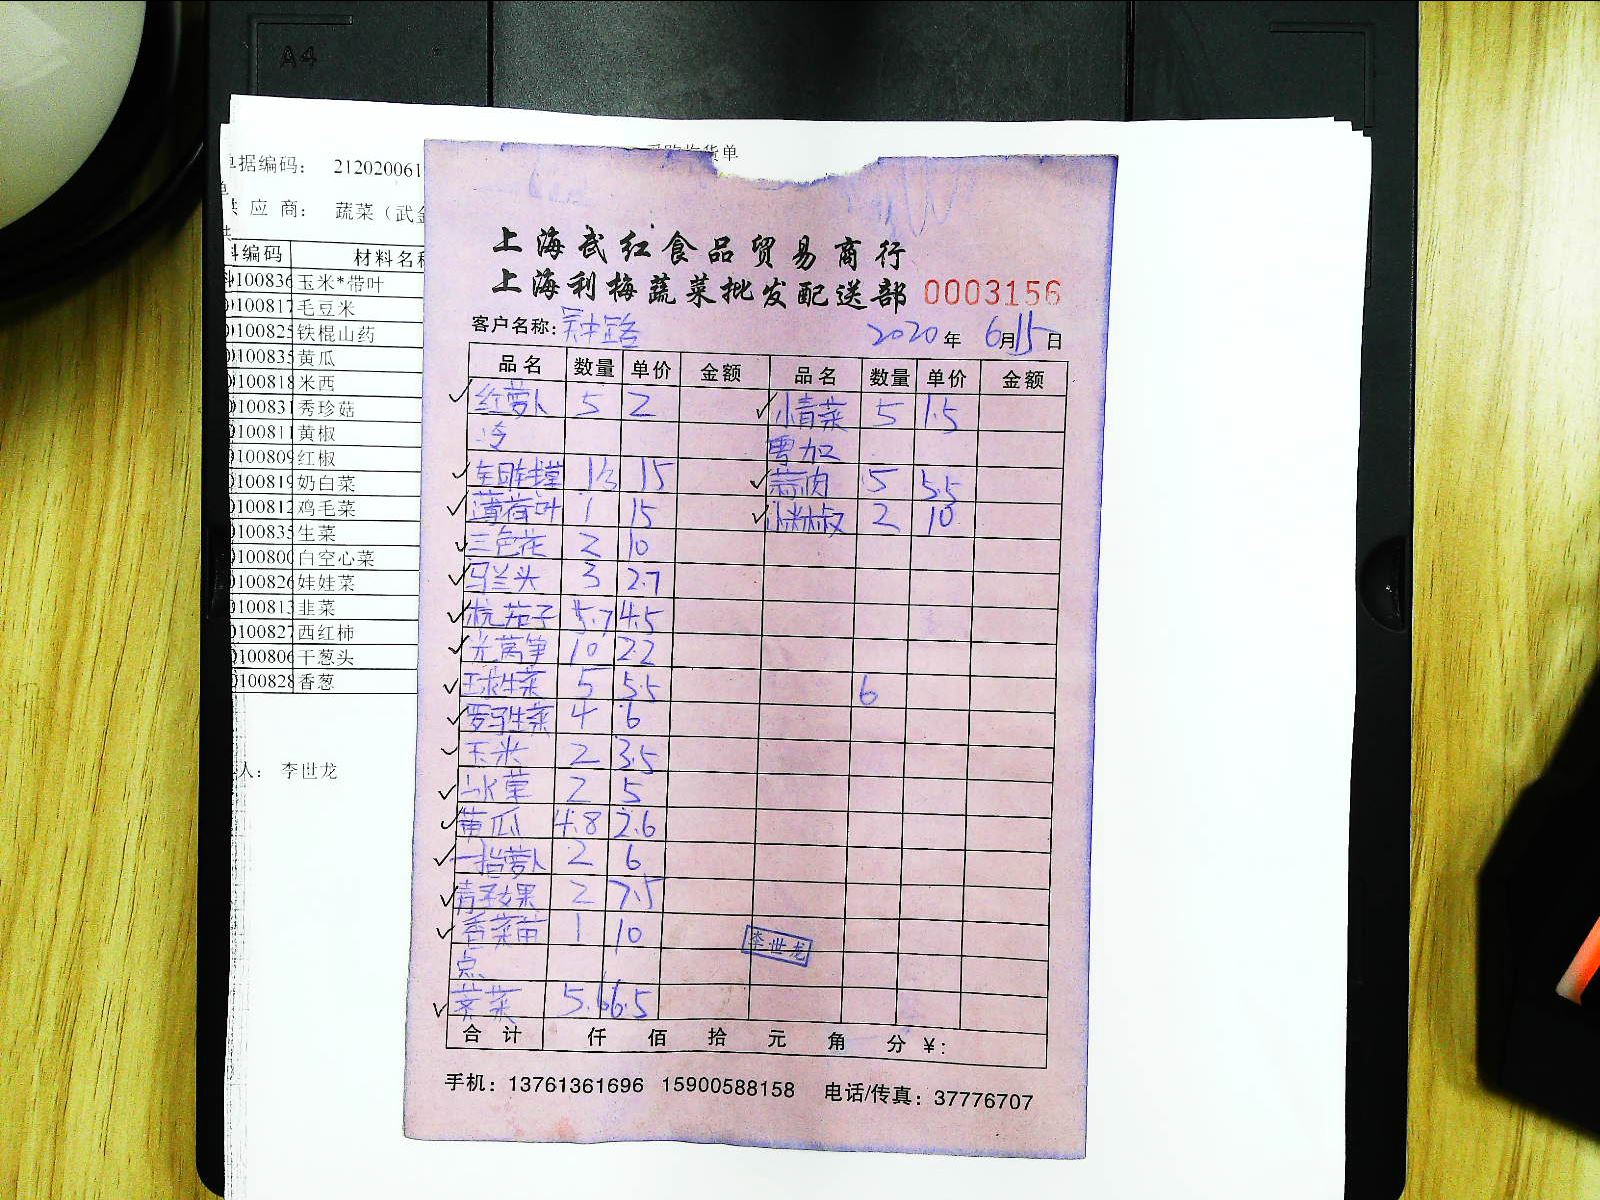 A4
单据编码： 212020061
供 应 商： 蔬菜（武金
料编码 材料名称
0100836 玉米*带叶
0100817 毛豆米
0100825 铁棍山药
0100835 黄瓜
0100818 米西
0100831 秀珍菇
0100811 黄椒
0100809 红椒
0100819 奶白菜
0100812 鸡毛菜
0100835 生菜
0100800 白空心菜
0100826 娃娃菜
0100813 韭菜
0100827 西红柿
0100806 干葱头
0100828 香葱
人： 李世龙
上海武红食品贸易商行
上海利梅蔬菜批发配送部 0003156
客户名称： 2020 年 6 月 15 日
品名 数量 单价 金额 品名 数量 单价 金额
红萝卜 5 2 小青菜 5 1.5
冷 加
13 15 蒜肉 5 5.5
薄荷叶 1 15 小米椒 2 10
三色花 2 10
马兰头 3 2.7
杭茄子 5.7 4.5
光莴笋 10 2.2
球生菜 5 5.5 6
罗马生菜 4 6
玉米 2 3.5
冰草 2 5
黄瓜 4.8 2.6
萝卜 2 6
2 7.5
香菜苗 1 10
李世龙
点
荠菜 5.6 6.5
合计 仟 佰 拾 元 角 分 ¥:
手机：13761361696 15900588158 电话/传真：37776707